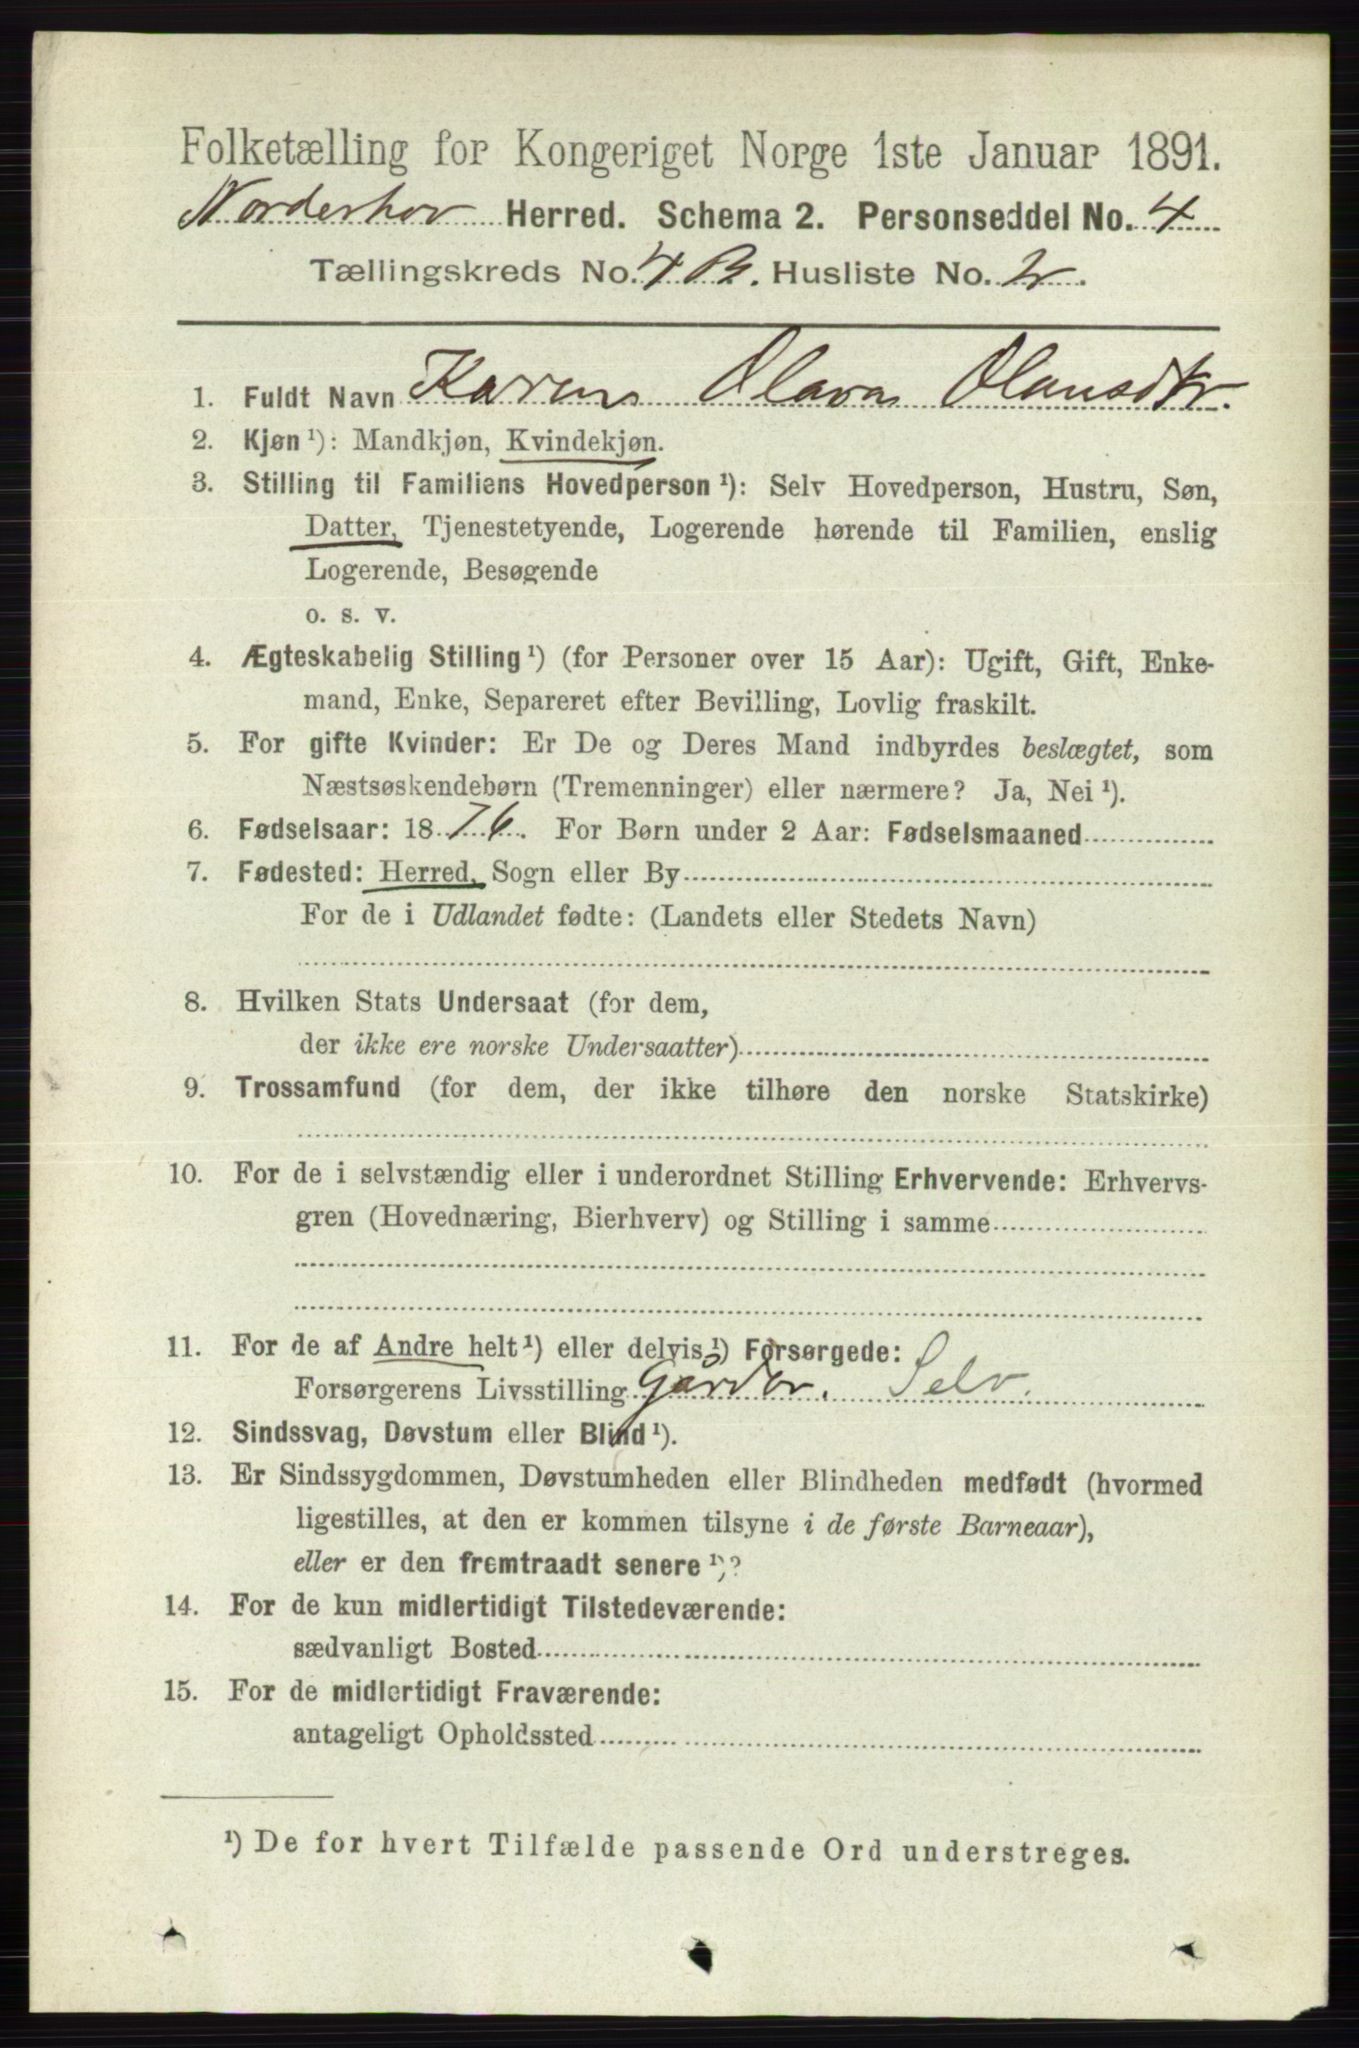 Folketælling for Kongeriget Norge 1ste Januar 1891.
Norderhov Herred. Schema 2. Personseddel No. 4
Tællingskreds No. 4 B. Husliste No. 2.
1. Fuldt Navn Karen Olava Olausdtr.
2. Kjøn ¹): Mandkjøn, Kvindekjøn.
3. Stilling til Familiens Hovedperson ¹): Selv Hovedperson, Hustru, Søn,
Datter, Tjenestetyende, Logerende hørende til Familien, enslig
Logerende, Besøgende
o. s. v.
4. Ægteskabelig Stilling ¹) (for Personer over 15 Aar): Ugift, Gift, Enke-
mand, Enke, Separeret efter Bevilling, Lovlig fraskilt.
5. For gifte Kvinder: Er De og Deres Mand indbyrdes beslægtet, som
Næstsøskendebørn (Tremenninger) eller nærmere? Ja, Nei ¹).
6. Fødselsaar: 1876. For Børn under 2 Aar: Fødselsmaaned
7. Fødested: Herred, Sogn eller By
For de i Udlandet fødte: (Landets eller Stedets Navn)
8. Hvilken Stats Undersaat (for dem,
der ikke ere norske Undersaatter)
9. Trossamfund (for dem, der ikke tilhøre den norske Statskirke)
10. For de i selvstændig eller i underordnet Stilling Erhvervende: Erhvervs-
gren (Hovednæring, Bierhverv) og Stilling i samme
11. For de af Andre helt ¹) eller delvis ¹) Forsørgede:
Forsørgerens Livsstilling Gårdbr. Selv.
12. Sindssvag, Døvstum eller Blind ¹).
13. Er Sindssygdommen, Døvstumheden eller Blindheden medfødt (hvormed
ligestilles, at den er kommen tilsyne i de første Barneaar),
eller er den fremtraadt senere ¹)?
14. For de kun midlertidigt Tilstedeværende:
sædvanligt Bosted
15. For de midlertidigt Fraværende:
antageligt Opholdssted
¹) De for hvert Tilfælde passende Ord understreges.